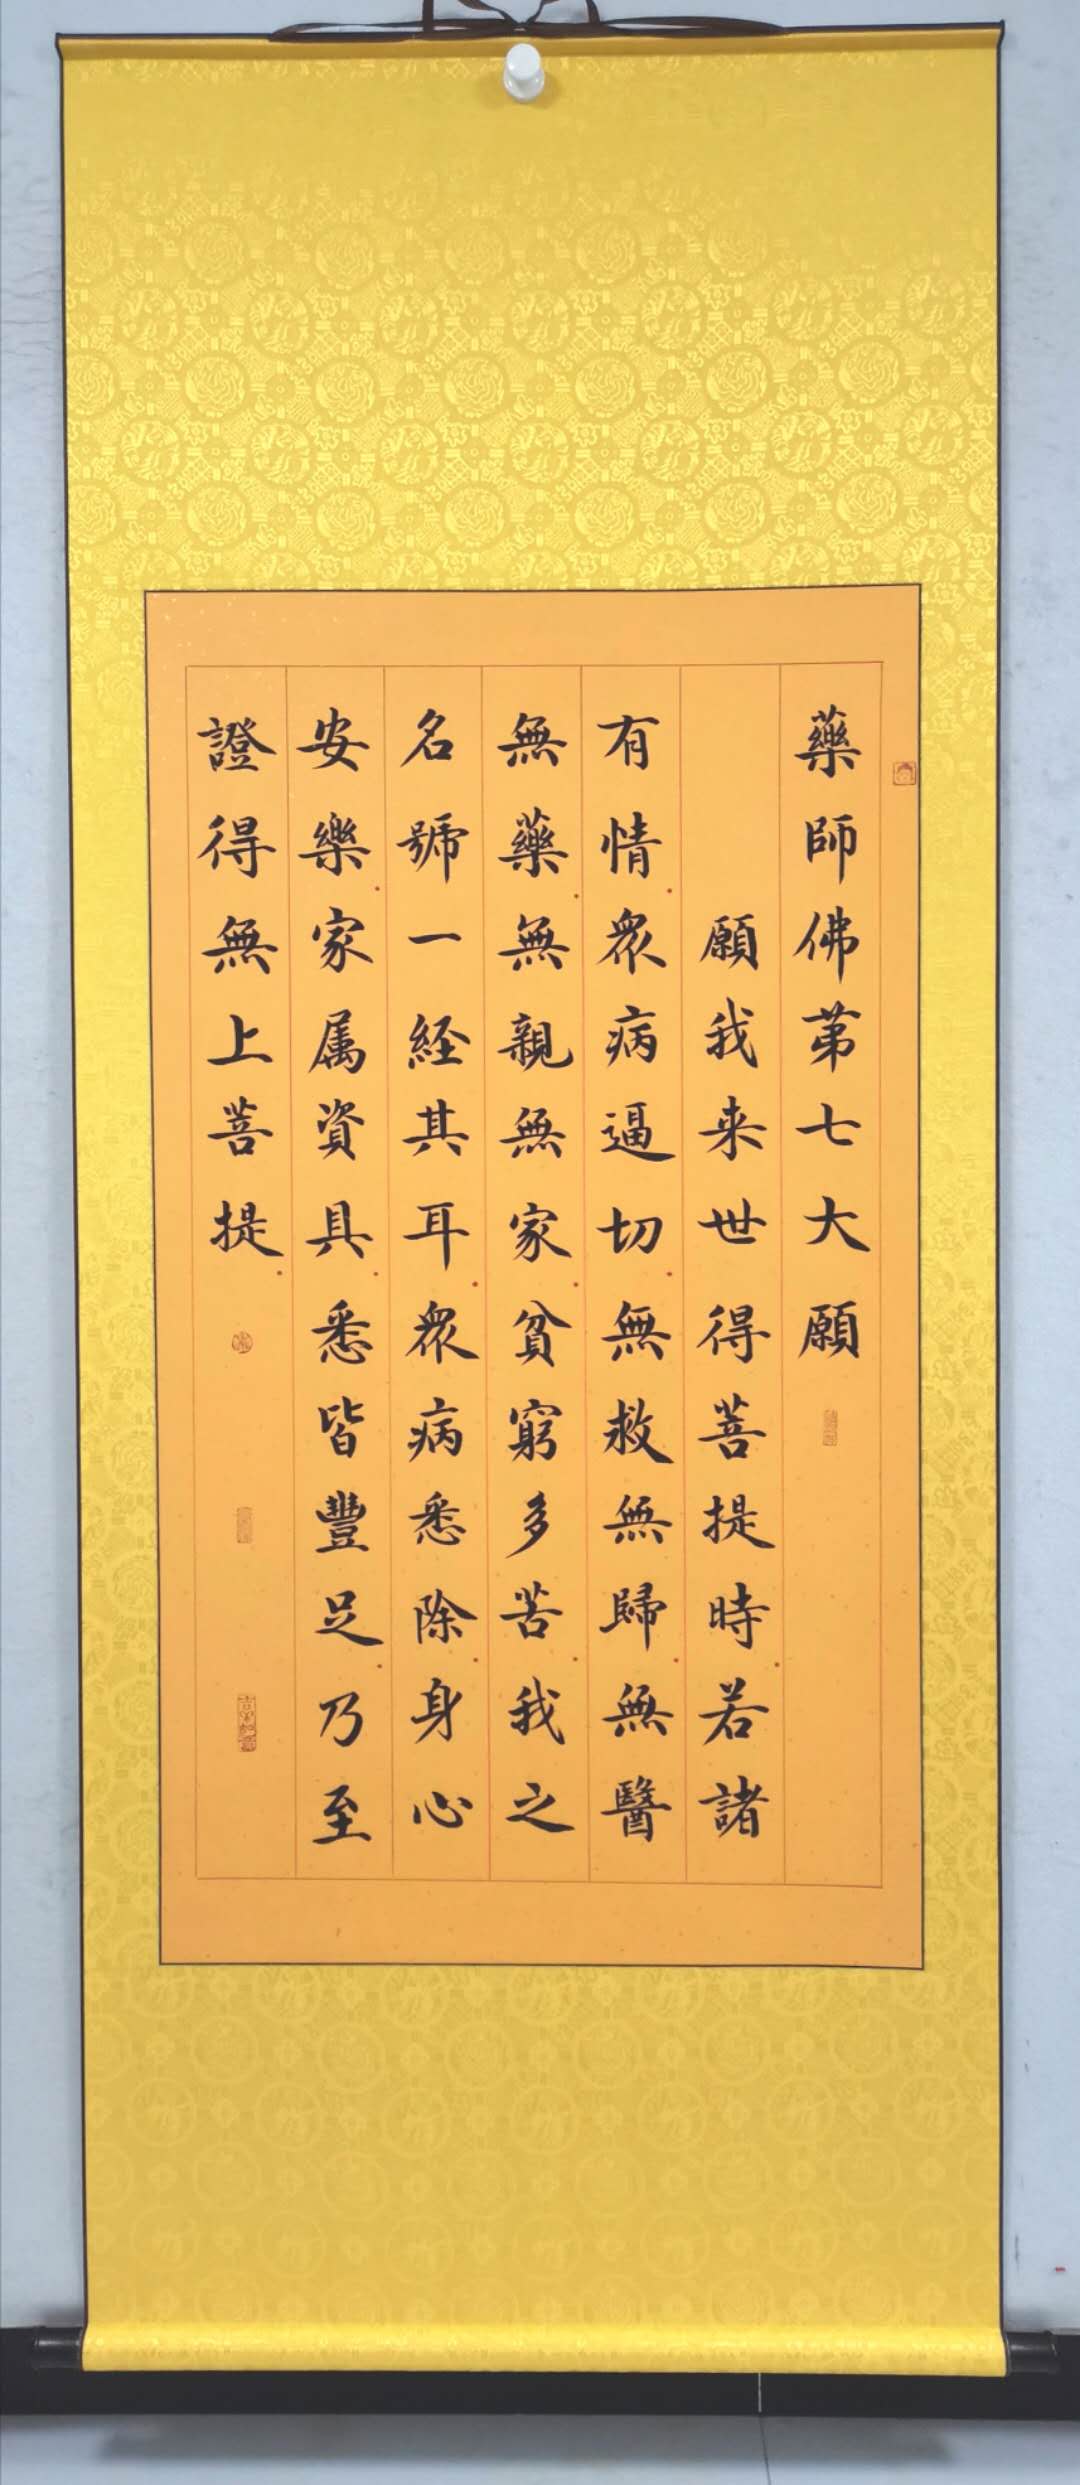 藥師佛苐七大願
願我来世得菩提時若諸
有情衆病逼切無救無歸無醫
無藥無親無家貧窮多苦我之
名號一経其耳衆病悉除身心
安樂家属資具悉皆豐足乃至
證得無上菩提